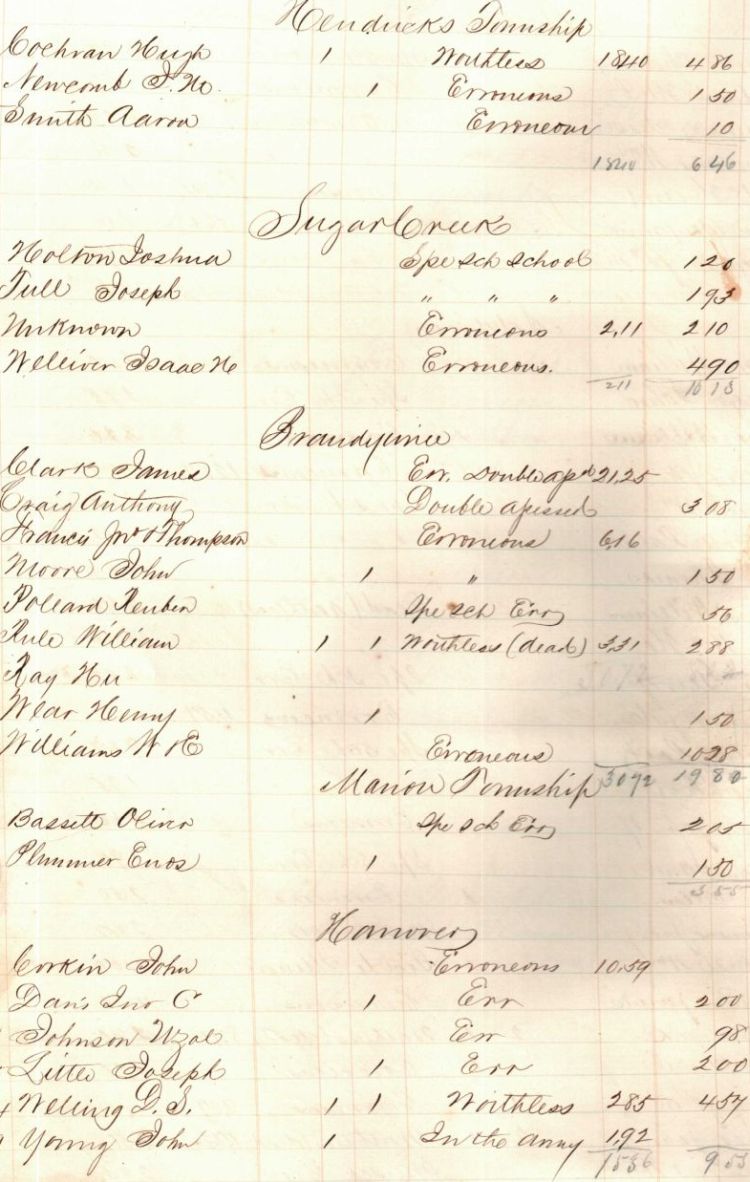 Hendricks Township
Cochran Hugh 1 Worthless 1840 486
Newcomb J. M. 1 Erroneous 150
Smith Aaron Erroneous 10
1840 646
Sugar Creek
Holton Joshua Spe sch school 120
Tull Joseph " " " 193
Unknown Erroneous 2,11 210
Welliver Isaac N Erroneous. 490
211 1013
Brandywine
Clark James Err. Double apsd 21,25
Craig Anthony Double apessed 308
Francis Jno & Thompson Erroneous 6,16
Moore John 1 " 150
Pollard Reuben Spe sch Err 56
Rule William 1 1 Worthless (dead) 3,31 288
Ray Hu
Wear Henny 1 150
Williams W & E Erroneous 1028
Marion Township 3072 1980
Bassett Oliver Spe sch Err 205
Plummer Enos 1 150
355
Hanover
Corkin John Erroneous 10,59
Davis Jno C 1 Err 200
Johnson Uzal Err 98
Litte Joseph 1 Err 200
Welling D. S. 1 1 Worthless 285 457
Young John 1 In the army 1,92
1536 955